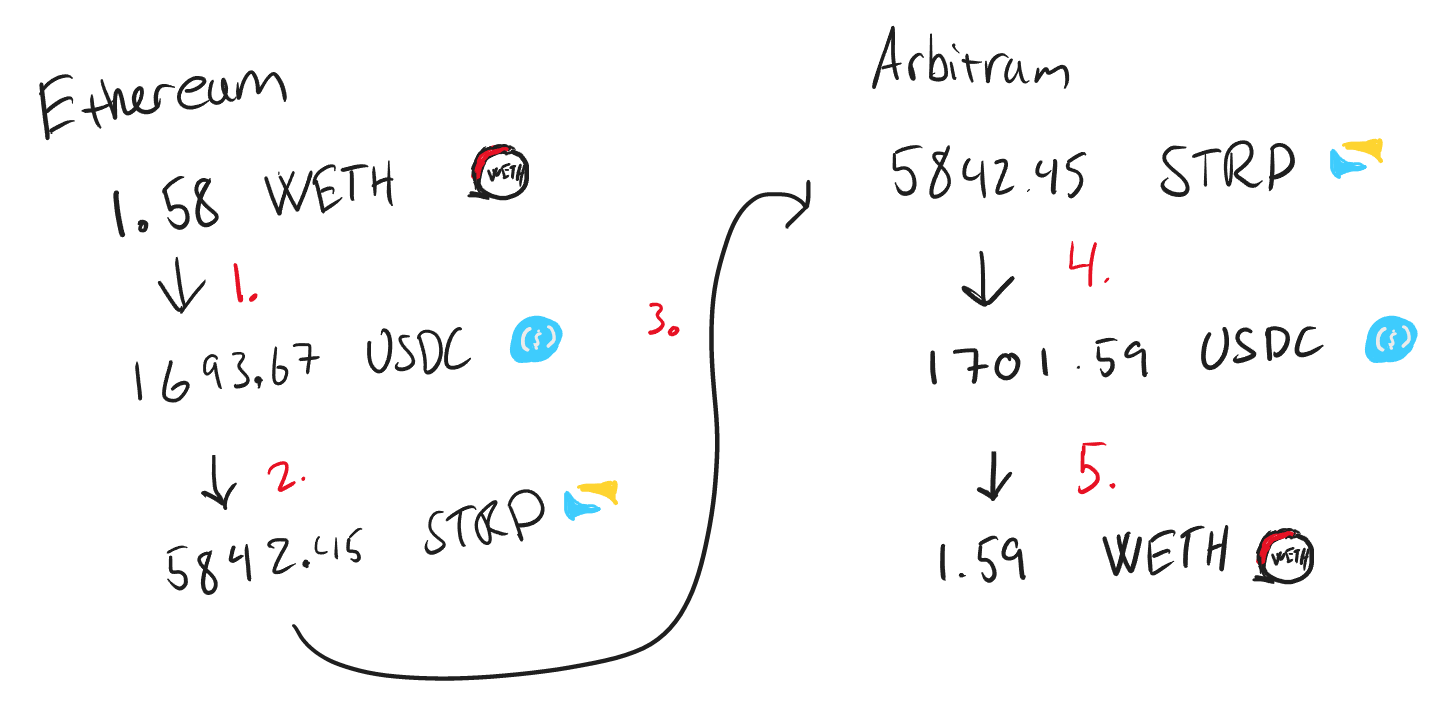 Ethereum
1.58 WETH WETH
1.
1693.67 USDC ($)
2.
5842.45 STRP
3.
Arbitrum
5842.45 STRP
4.
1701.59 USDC ($)
5.
1.59 WETH WETH